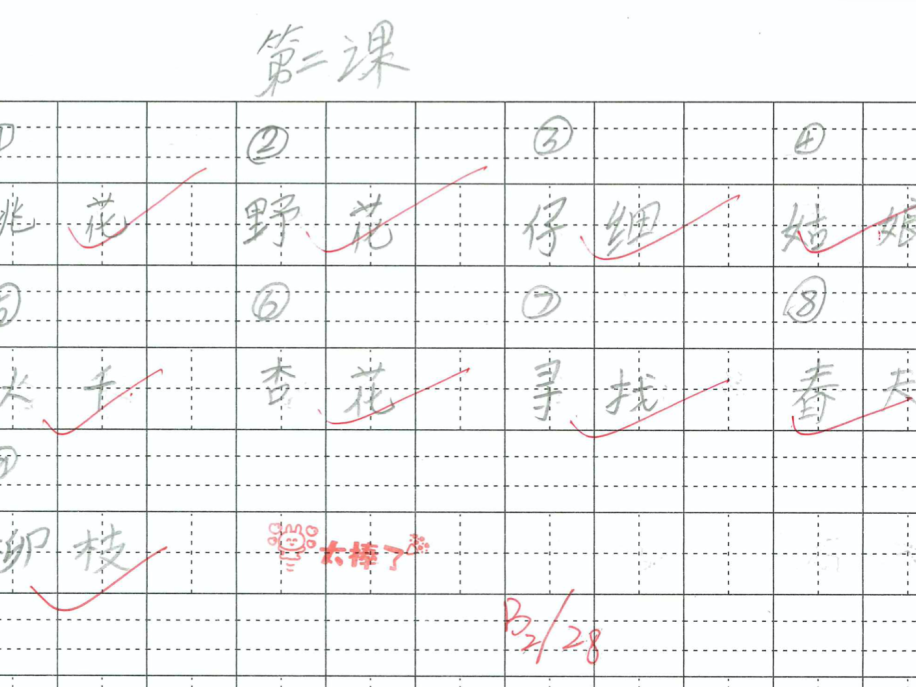 第二课
① ② ③ ④
桃花 野花 仔细 姑娘
⑤ ⑥ ⑦ ⑧
秋千 杏花 寻找 春天
⑨
柳枝 太棒了
B2/28